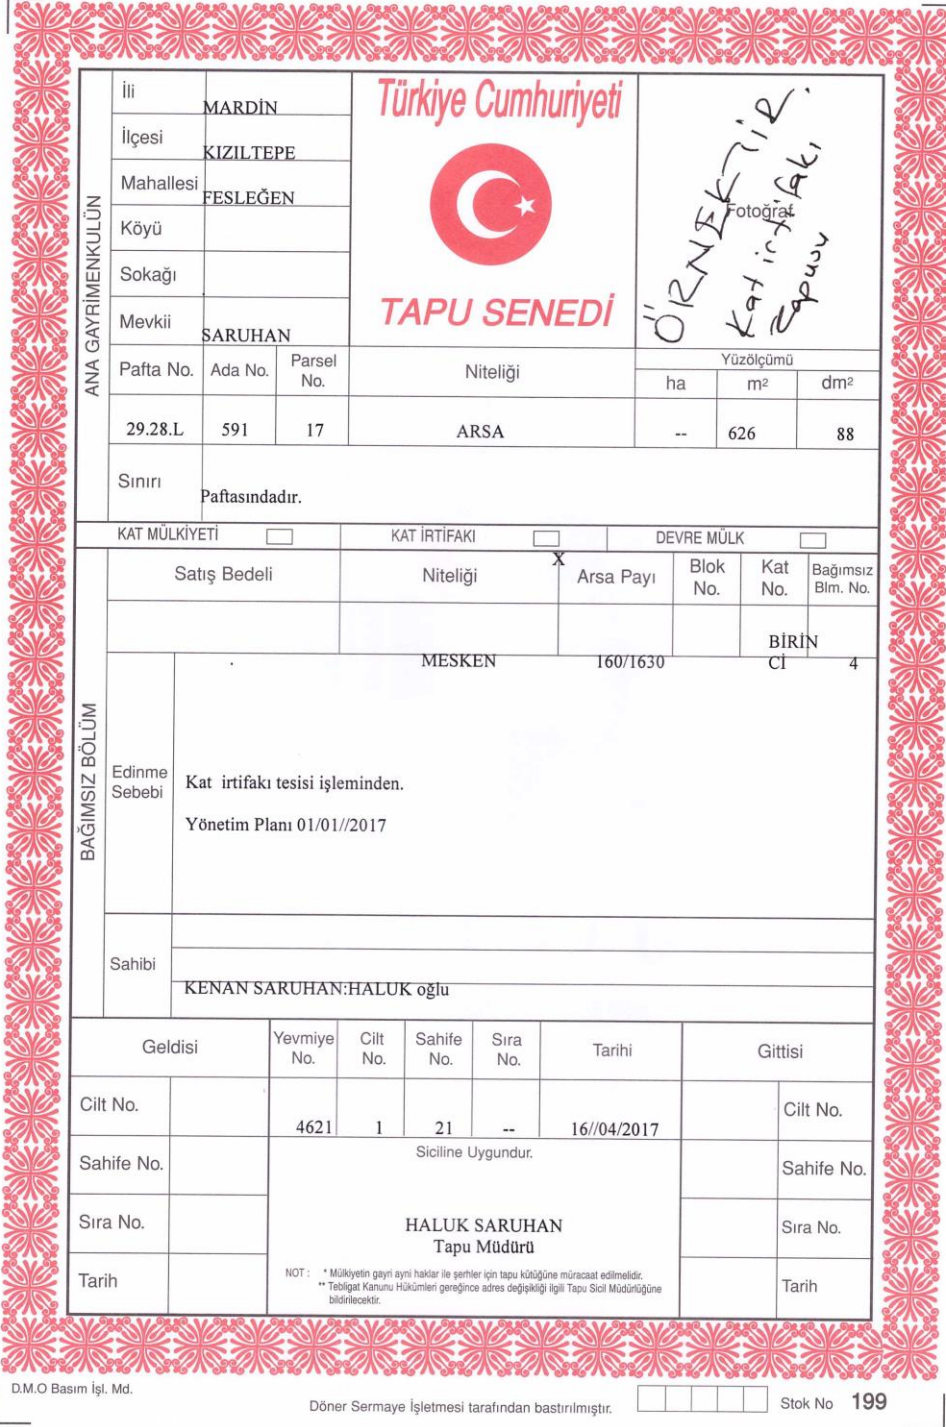 İli MARDİN
İlçesi KIZILTEPE
Mahallesi FESLEĞEN
Köyü
Sokağı
Mevkii SARUHAN
ANA GAYRİMENKULÜN
Türkiye Cumhuriyeti
TAPU SENEDİ
Fotoğraf
ÖRNEKTİR.
Kat irtifakı
Tapusu
Pafta No. Ada No. Parsel No. Niteliği Yüzölçümü
ha m² dm²
29.28.L 591 17 ARSA -- 626 88
Sınırı Paftasındadır.
KAT MÜLKİYETİ KAT İRTİFAKI X DEVRE MÜLK
BAĞIMSIZ BÖLÜM
Satış Bedeli Niteliği Arsa Payı Blok No. Kat No. Bağımsız Blm. No.
MESKEN 160/1630 BİRİN Cİ 4
Edinme Sebebi
Kat irtifakı tesisi işleminden.
Yönetim Planı 01/01//2017
Sahibi
KENAN SARUHAN:HALUK oğlu
Geldisi Yevmiye No. Cilt No. Sahife No. Sıra No. Tarihi Gittisi
Cilt No. 4621 1 21 -- 16//04/2017 Cilt No.
Siciline Uygundur.
Sahife No. Sahife No.
Sıra No. HALUK SARUHAN Sıra No.
Tapu Müdürü
Tarih Tarih
NOT : * Mülkiyetin gayri ayni haklar ile şerhler için tapu kütüğüne müracaat edilmelidir.
** Tebligat Kanunu Hükümleri gereğince adres değişikliği ilgili Tapu Sicil Müdürlüğüne
bildirilecektir.
D.M.O Basım İşl. Md.
Döner Sermaye İşletmesi tarafından bastırılmıştır.
Stok No 199